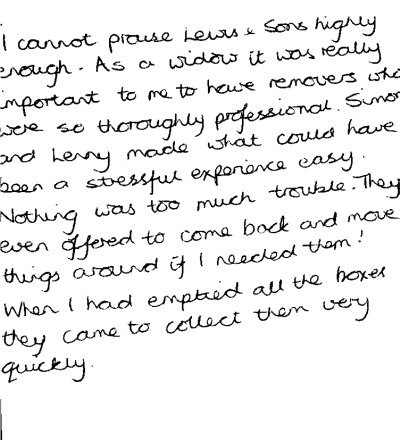 I cannot praise Lewis & Sons highly
enough. As a widow it was really
important to me to have removers who
were so thoroughly professional. Simon
and Lenny made what could have
been a stressful experience easy.
Nothing was too much trouble. They
even offered to come back and move
things around if I needed them!
When I had emptied all the boxes
they came to collect them very
quickly.